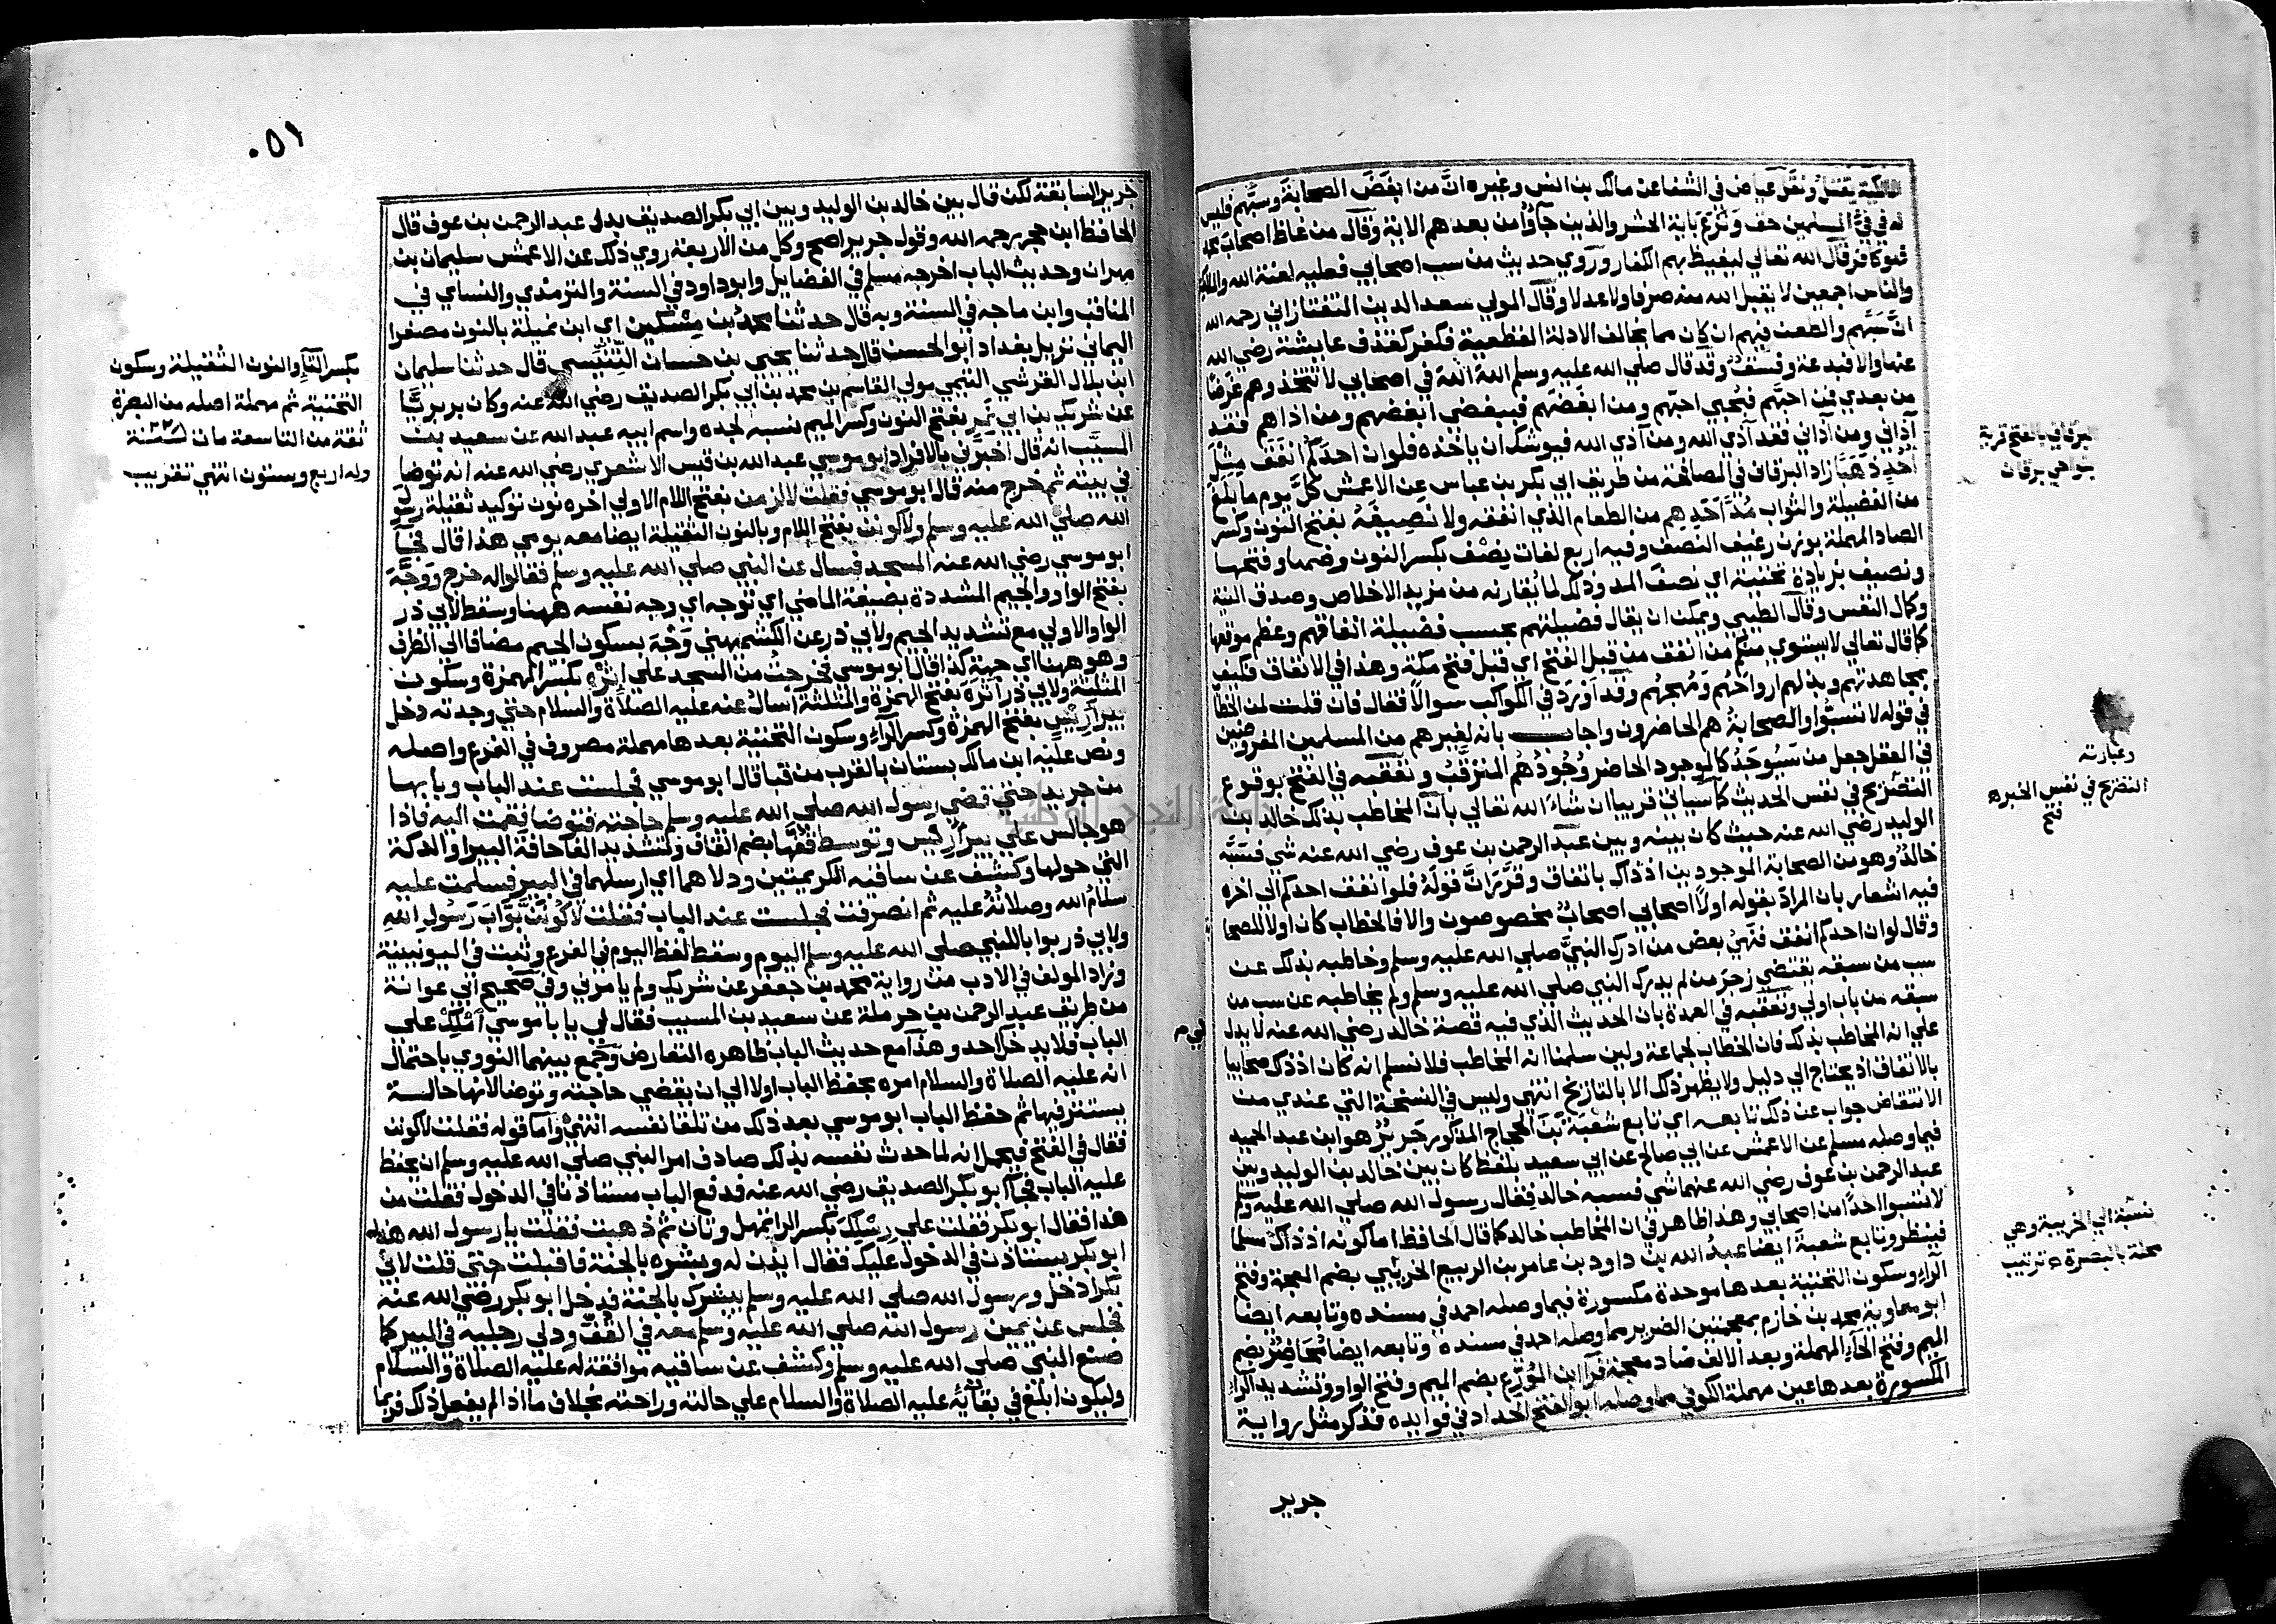 المالكية يقتل ونقل عياض في الشفا عن مالك بن انس وغيره ان من ابغض الصحابة وسبهم فليس
له في فيء المسلمين حق ونزع باية الحشر والذين جاؤا من بعدهم الاية وقال من غاظ اصحاب محمد
فهو كافر قال الله تعالي ليغيظ بهم الكفار وروي حديث من سب اصحابي فعليه لعنة الله والملائكة
والناس اجمعين لا يقبل الله منه صرفا ولا عدلا وقال المولي سعد الدين التفتازاني رحمه الله
ان سبهم والطعن فيهم ان كان مما يخالف الادلة القطعية فكفر كقذف عايشة رضي الله
عنها والا فبدعة وفسق وقد قال صلي الله عليه وسلم الله الله في اصحابي لا تتخذوهم غرضا
من بعدي فمن احبهم فبحبي احبهم ومن ابغضهم فببغضي ابغضهم ومن اذاهم فقد
آذاني ومن آذاني فقد آذي الله ومن آذي الله فيوشك ان ياخذه فلو ان احدكم انفق مثل
احد ذهبا زاد البرقاني في المصافحة من طريق ابي بكر بن عياس عن الاعمش كل يوم ما بلغ
من الفضيلة والثواب مد احدهم من الطعام الذي انفقه ولا نصيفه بفتح النون وكسر
الصاد المهملة بوزن رغيف النصف وفيه اربع لغات نصف بكسر النون وضمها وفتحها
ونصيف بزيادة تحتية اي نصف المد وذلك لما يقارنه من مزيد الاخلاص وصدق النية
وكمال النفس وقال الطيبي ويمكن ان يقال فضيلتهم بحسب فضيلة انفاقهم وعظم موقعها
كما قال تعالي لا يستوي منكم من انفق من قبل الفتح اي قبل فتح مكة وهذا في الانفاق فكيف
بمجاهدتهم وبذلهم ارواحهم ومهجهم وقد اورد في الكواكب سوالا فقال فان قلت لمن الخطاب
في قوله لا تسبوا والصحابة هم الحاضرون واجاب بانه لغيرهم من المسلمين المفروضين
في العقل جعل من سيوجد كالموجود الحاضر وجودهم المترقب وتعقبه في الفتح بوقوع
التصريح في نفس الحديث كما سياتي قريبا ان شاء الله تعالي بان المخاطب بذلك خالد بن
الوليد رضي الله عنه حيث كان بينه وبين عبد الرحمن بن عوف رضي الله عنه شي فسبه
خالد وهو من الصحابة الموجودين اذ ذاك باتفاق وقرر ان قوله فلو انفق احدكم الي اخره
فيه اشعار بان المراد بقوله اولا اصحابي اصحاب مخصوصون والا فالخطاب كان اولا للصحابة
وقال لو ان احدكم انفق فنهي بعض من ادرك النبي صلي الله عليه وسلم وخاطبه بذلك عن
سب من سبقه يقتضي زجر من لم يدرك النبي صلي الله عليه وسلم ولم يخاطبه عن سب من
سبقه من باب اولي وتعقبه في العمدة بان الحديث الذي فيه قصة خالد رضي الله عنه لا يدل
علي انه المخاطب بذلك فان الخطاب لجماعة ولين سلمنا انه المخاطب فلا نسلم انه كان اذ ذاك صحابيا
بالاتفاق اذ يحتاج الي دليل ولا يظهر ذلك الا بالتاريخ انتهي وليس في النسخة التي عندي من
الانتقاض جواب عن ذلك تابعه اي تابع شعبة بن الحجاج المذكور جرير هو ابن عبد الحميد
فيما وصله مسلم عن الاعمش عن ابي صالح عن ابي سعيد بلفظ كان بين خالد بن الوليد وبين
عبد الرحمن بن عوف رضي الله عنهما شي فسبه خالد فقال رسول الله صلي الله عليه وسلم
لا تسبوا احدا من اصحابي وهذا ظاهر في ان المخاطب خالد كما قال الحافظ اما كونه اذ ذاك مسلما
فينظر وتابع شعبة ايضا عبد الله بن داود بن عامر بن الربيع الخريبي بضم المعجمة وفتح
الراء وسكون التحتية بعدها موحدة مكسورة فيما وصله احمد في مسنده وتابعه ايضا
ابو معاوية محمد بن خازم بمعجمتين الضرير مما وصله احمد في مسنده وتابعه ايضا محاضر بضم
الميم وفتح الحاء المهملة وبعد الالف ضاد معجمة فرا ابن المورع بضم الميم وفتح الواو وتشديد الراء
المكسورة بعدها عين مهملة الكوفي مما وصله ابو الفتح الحداد في فوايده فذكر مثل رواية
جرير
البرقاني بالفتح قرية
بنواحي برقان
وعبارته
التصريح في نفس الخبره
فتح
نسبة الي الخريبة وهي
محلة بالبصرة ه ترتيب
٥١٠
جرير السابقة لكن قال بين خالد بن الوليد وبين ابي بكر الصديق بدل عبد الرحمن بن عوف قال
الحافظ ابن حجر رحمه الله وقول جرير اصح وكل من الاربعة روي ذلك عن الاعمش سليمان بن
مهران وحديث الباب اخرجه مسلم في الفضايل وابو داود في السنة والترمذي والنساي في
المناقب وابن ماجه في السنة وبه قال حدثنا محمد بن مسكين اي ابن نميلة بالنون مصغرا
اليماني نزيل بغداد ابو الحسن قال حدثنا يحيي بن حسان التنيسي قال حدثنا سليمان
ابن بلال القرشي التيمي مولي القاسم بن محمد بن ابي بكر الصديق رضي الله عنه وكان بربريا
عن شريك بن ابي نمر بفتح النون وكسر الميم نسبه لجده واسم ابيه عبد الله عن سعيد بن
المسيب انه قال اخبرني بالافراد ابو موسي عبد الله بن قيس الاشعري رضي الله عنه انه توضا
في بيته ثم خرج منه قال ابو موسي فقلت لالزمن بفتح اللام الاولي اخره نون توكيد ثقيلة رسول
الله صلي الله عليه وسلم ولاكونن بفتح اللام وبالنون الثقيلة ايضا معه يومي هذا قال فجاء
ابو موسي رضي الله عنه المسجد فسال عن النبي صلي الله عليه وسلم فقالوا له خرج ووجه
بفتح الواو والجيم المشددة بصيغة الماضي اي توجه اي وجه نفسه ههنا وسقط لابي ذر
الواو الاولي مع تشديد الجيم ولابي ذر عن الكشميهني وجه بسكون الجيم مضافا الي الظرف
وهو ههنا اي جهة كذا قال ابو موسي فخرجت من المسجد علي اثره بكسر الهمزة وسكون
المثلثة ولابي ذر اثره بفتح الهمزة والمثلثة اسال عنه عليه الصلاة والسلام حتي وجدته دخل
بير اريس بفتح الهمزة وكسر الراء وسكون التحتية بعدها مهملة مصروف في الفرع واصله
ونص عليه ابن مالك بستان بالقرب من قبا قال ابو موسي فجلست عند الباب وبابها
من جريد حتي قضي رسول الله صلي الله عليه وسلم حاجته فتوضا فقمت اليه فاذا
هو جالس علي بير اريس وتوسط قفها بضم القاف وتشديد الفا حافة البير او الدكة
التي حولها وكشف عن ساقيه الكريمتين ودلاهما اي ارسلهما في البير فسلمت عليه
سلام الله وصلاته عليه ثم انصرفت فجلست عند الباب فقلت لاكونن بواب رسول الله
ولابي ذر بوابا للنبي صلي الله عليه وسلم اليوم وسقط لفظ اليوم في الفرع وثبت في اليونينية
وزاد المولف في الادب من رواية محمد بن جعفر عن شريك ولم يامرني وفي صحيح ابي عوانة
من طريق عبد الرحمن بن حرملة عن سعيد بن المسيب فقال لي يا با موسي املك علي
الباب فلا يدخل احد وهذا مع حديث الباب ظاهره التعارض وجمع بينهما النووي باحتمال
انه عليه الصلاة والسلام امره بحفظ الباب اولا الي ان يقضي حاجته وتوضا لانها حالة
يستتر فيها ثم حفظ الباب ابو موسي بعد ذلك من تلقا نفسه انتهي واما قوله فقلت لاكونن
فقال في الفتح فيحمل انه لما حدث نفسه بذلك صادف امر النبي صلي الله عليه وسلم ان يحفظ
عليه الباب فجا ابو بكر الصديق رضي الله عنه فدفع الباب مستاذنا في الدخول فقلت من
هذا فقال ابو بكر فقلت علي رسلك بكسر الرا تمهل وتان ثم ذهبت فقلت يا رسول الله هذا
ابو بكر يستاذن في الدخول عليك فقال ايذن له وبشره بالجنة فاقبلت حتي قلت لابي
بكر ادخل ورسول الله صلي الله عليه وسلم يبشرك بالجنة فدخل ابو بكر رضي الله عنه
فجلس عن يمين رسول الله صلي الله عليه وسلم معه في القف ودلي رجليه في البير كما
صنع النبي صلي الله عليه وسلم وكشف عن ساقيه موافقة له عليه الصلاة والسلام
وليكون ابلغ في بقائه عليه الصلاة والسلام علي حالته وراحته بخلاف ما اذا لم يفعل ذلك فربما
بكسر التاء والنون الثقيلة وسكون
التحتية ثم مهملة اصله من البصرة
ثقة من التاسعة مات سنة
وله اربع وستون انتهي تقريب